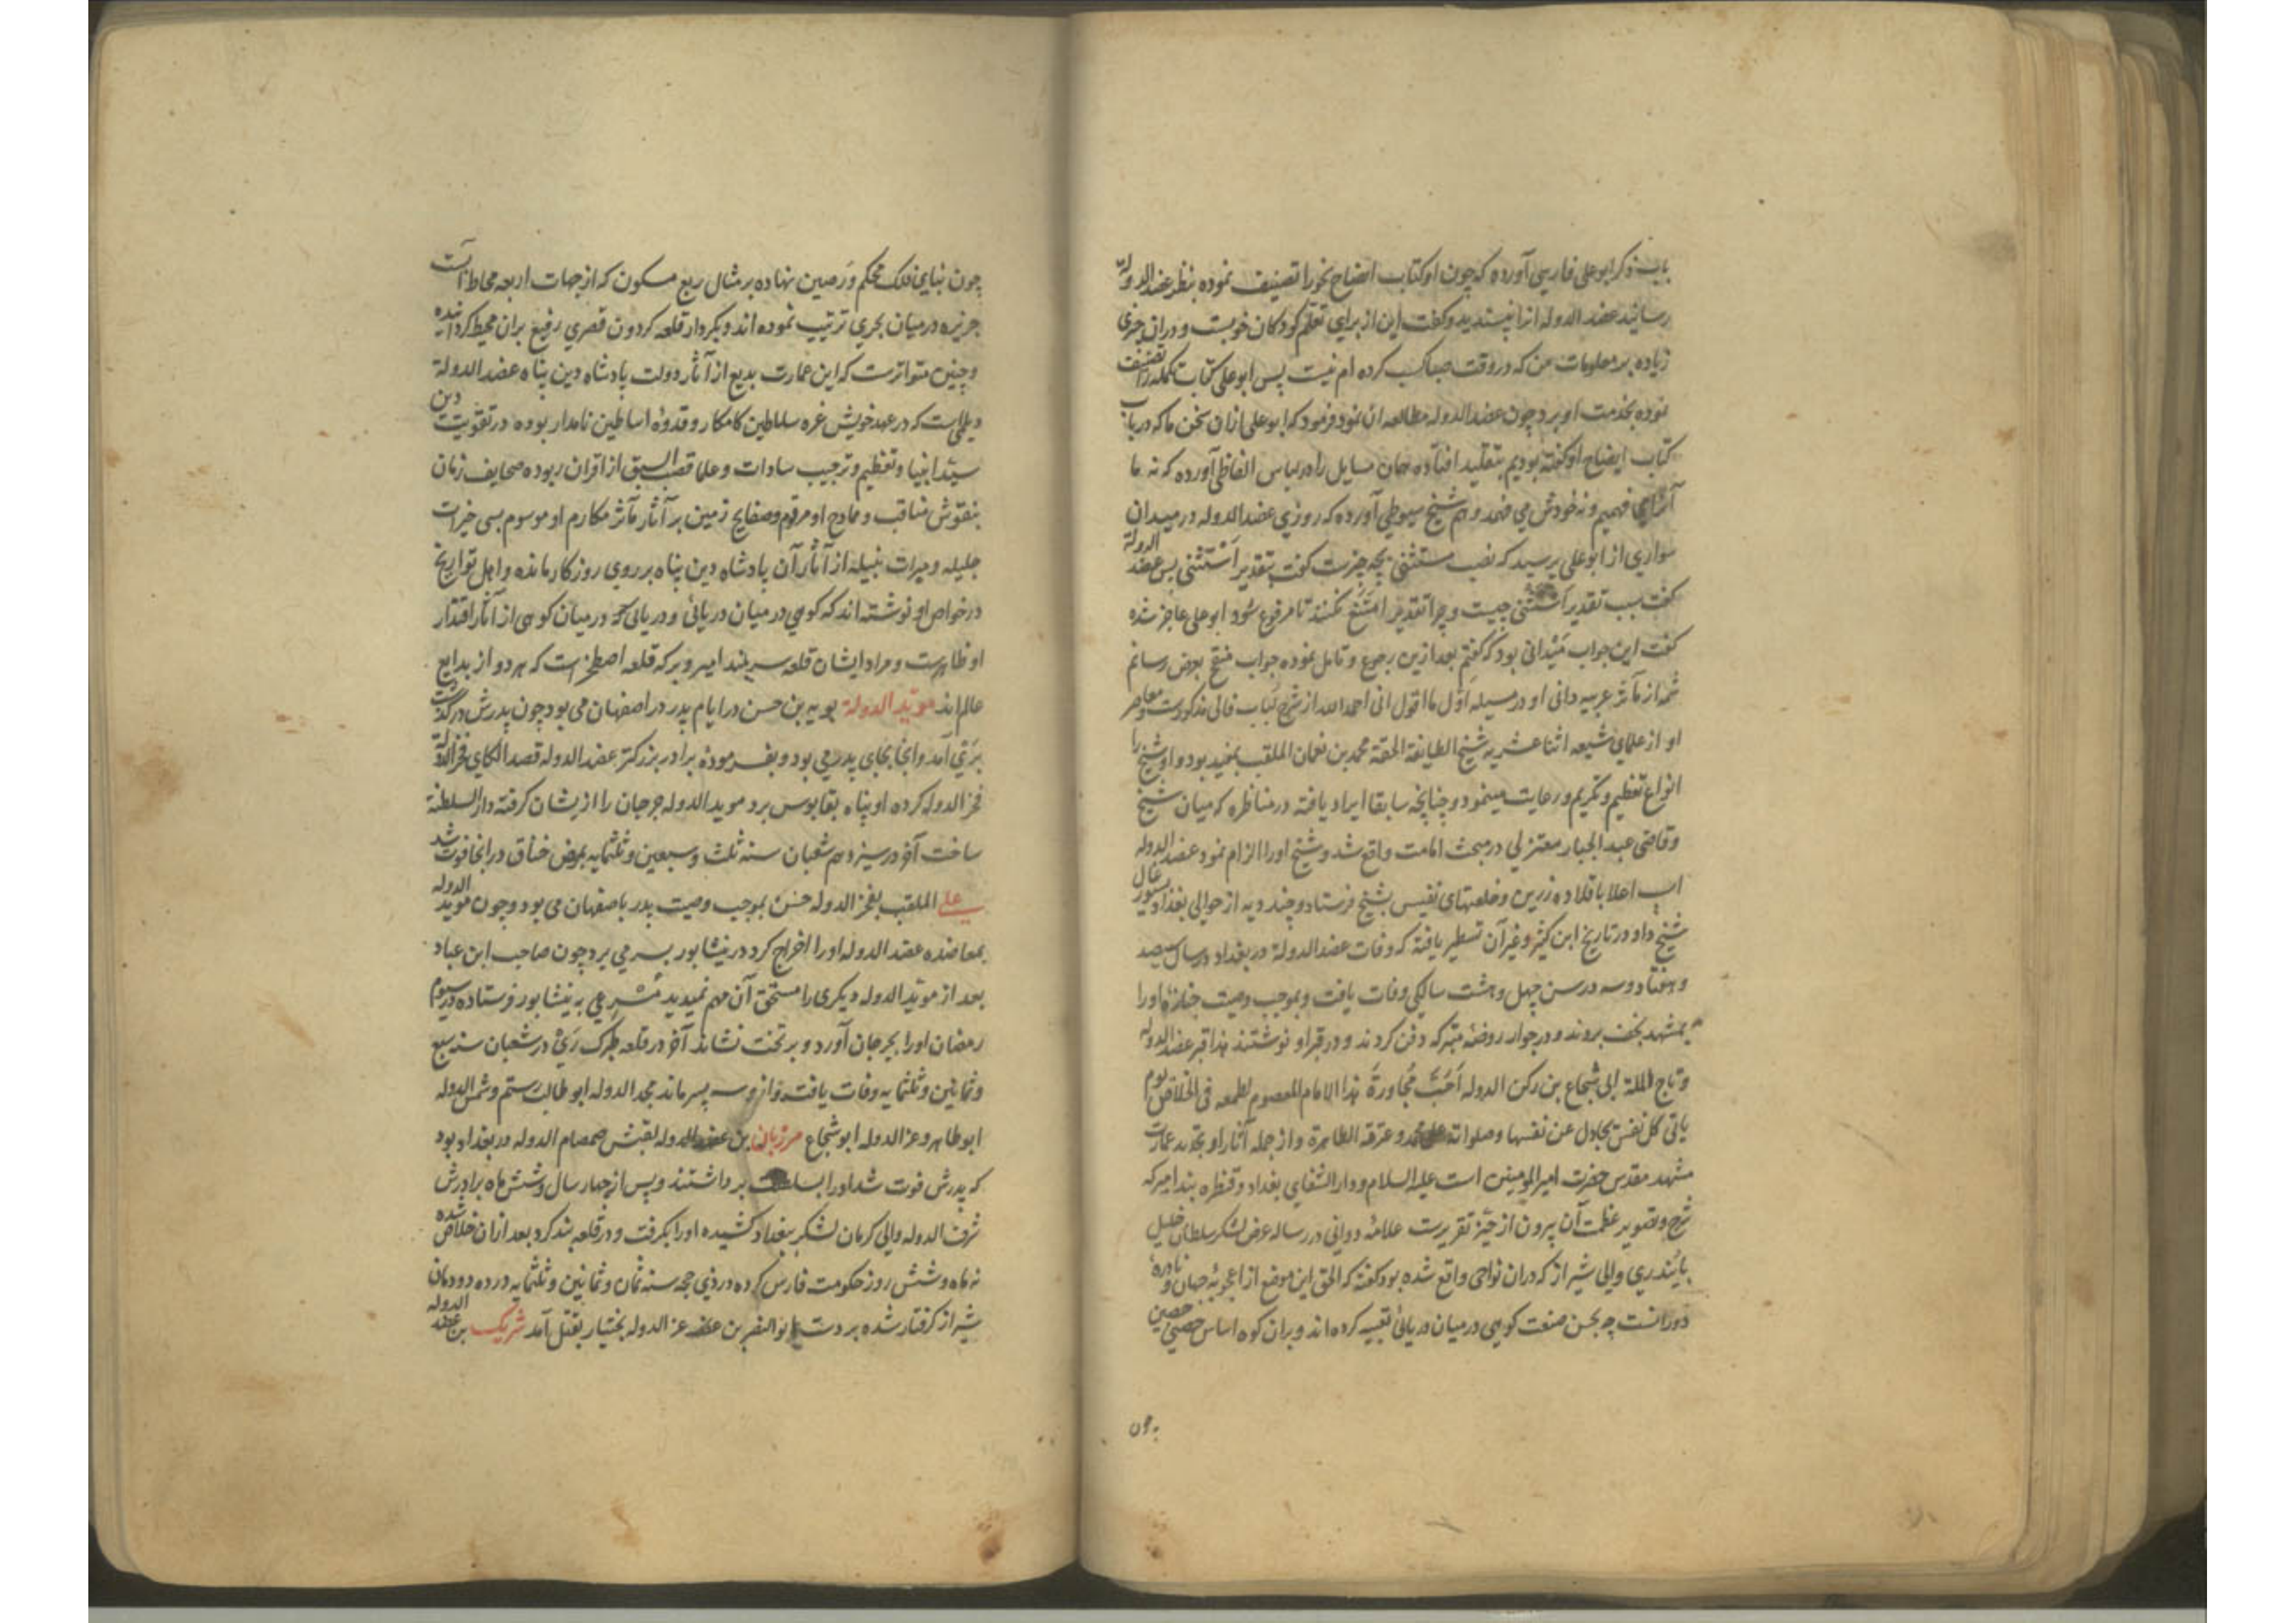 باب ذکر ابو علی فارسی آورده که چون او کتاب ایضاح نحو را تصنیف نموده بنظر عضد الدوله
رسانید عضد الدوله انرا نپسندید و کفت این از برای تعلم کودکان خوبست و در ان چیزی
زیاده بر معلومات من که در وقت صبا کسب کرده ام نیست پس ابو علی کتاب تکمله را تصنیف
نموده بخدمت او برد چون عضد الدوله مطالعه ان نمود فرمود که ابو علی ازان سخن ما که در باب
کتاب ایضاح او کفته بودیم بتقلید افتاده همان مسایل را در لباس الفاظی آورده که نه ما
آنرا می فهمیم و نه خودش می فهمد و هم شیخ سیوطی آورده که روزی عضد الدوله در میدان
سواری از ابو علی پرسید که نصب مستثنی بچه چیزست کفت بتقدیر استثنی پس عضد الدوله
کفت سبب تقدیر استثنی چیست و چرا تقدیر امتنع نکنند تا مرفوع شود ابو علی عاجز شده
کفت این جواب میدانی بود که کفتم بعد ازین رجوع و تامل نموده جواب منقح بعرض رسانم
شمه از مآثر عربیه دانی او در مسیله اول ما اقول انی احمد الله از شرح لباب فالی مذکورست و معاصر
او از علمای شیعه اثنا عشریه شیخ الطایفة الحقة محمد بن نعمان الملقب بمفید بود و او شیخ را
انواع تعظیم و تکریم و رعایت مینمود و چنانچه سابقا ایراد یافته در مناظره که میان شیخ
و قاضی عبد الجبار معتزلی در مبحث امامت واقع شد و شیخ او را الزام نمود عضد الدوله
اسپ اعلا با قلاده زرین و خلعتهای نفیس بشیخ فرستاد و چند دیه از حوالی بغداد بسیورغال
شیخ داد و در تاریخ ابن کثیر و غیر آن تسطیر یافته که وفات عضد الدولة در بغداد در سال سیصد
و هفتاد و سه در سن چهل و هشت سالکی وفات یافت و بموجب وصیت جنازه او را
بمشهد نجف بردند و در جوار روضه متبرکه دفن کردند و در قبر او نوشتند هذا قبر عضد الدوله
و تاج الملة ابی شجاع بن رکن الدوله احب مجاورة هذا الامام المعصوم لطمعه فی الخلاص یوم
یاتی کل نفس تجادل عن نفسها و صلواته علی محمد و عترته الطاهرة و از جمله آثار او تجدید عمارت
مشهد مقدس حضرت امیر المومنین است علیه السلام و دار الشفای بغداد و قنطره بند امیر که
شرح و تصویر عظمت آن بیرون از حیز تقریرست علامه دوانی در رساله عرض لشکر سلطان خلیل
بایندری والی شیراز که دران نواحی واقع شده بود کفته که الحق این موضع از اعجوبه جهان و نادره
دورانست چه بحسن صنعت کوهی در میان دریائی تعبیه کرده اند و بران کوه اساس حصنی حصین
چون
چون بنای فلک محکم و رصین نهاده بر مثال ربع مسکون که از جهات اربعه محاط آبست
جزیره در میان بحری ترتیب نموده اند و بکردار قلعه کردون قصری رفیع بران محیط کردانیده
و چنین متواترست که این عمارت بدیع از آثار دولت پادشاه دین پناه عضد الدولة
دیلمی است که در عهد خویش غره سلاطین کامکار و قدوه اساطین نامدار بوده در تقویت دین
سید انبیا و تعظیم و ترحیب سادات و علما قصب السبق از اقران ربوده صحایف زمان
بنقوش مناقب و ممادح او مرقوم و صفایح زمین بر آثار مآثر مکارم او موسوم بسی خیرات
جلیله و مبرات نبیله از آثار آن پادشاه دین پناه بر روی روزکار مانده و اهل تواریخ
در خواص او نوشته اند که کوهی در میان دریائی و دریائی در میان کوهی از آثار اقتدار
او ظاهرست و مراد ایشان قلعه سر بند امیر و برکه قلعه اصطخر است که هر دو از بدایع
عالم اند موید الدولة بویه بن حسن در ایام پدر در اصفهان می بود چون پدرش درکذشت
بری آمد و انجا بجای پدر می بود و بفرموده برادر بزرکتر عضد الدوله قصد الکای فخر الدوله
فخر الدوله کرده او پناه بقابوس برد موید الدوله جرجان را ازیشان کرفته دار السلطنة
ساخت آخر در سیزدهم شعبان سنه ثلث و سبعین و ثلثمایه بمرض خناق در انجا فوت شد
علی الملقب بفخر الدوله حسن بموجب وصیت پدر باصفهان می بود و چون موید الدوله
بمعاضده عضد الدوله او را اخراج کرد در نیشابور بسر می برد چون صاحب ابن عباد
بعد از موید الدوله دیکری را مستحق آن مهم نمیدید مسرعی به نیشابور فرستاده در سیوم
رمضان او را بجرجان آورد و بر تخت نشاند آخر در قلعه طبرک ری در شعبان سنه سبع
و ثمانین و ثلثمایه وفات یافت و ازو سه پسر ماند مجد الدوله ابو طالب رستم و شمس الدوله
ابو طاهر و عز الدوله ابو شجاع مرزبان بن عضد الدوله لقبش صمصام الدوله در بغداد بود
که پدرش فوت شد او را بسلطنت برداشتند و پس از چهار سال و شش ماه برادرش
شرف الدوله والی کرمان لشکر ببغداد کشیده او را بکرفت و در قلعه بند کرد بعد ازان خلاص شده
نه ماه و شش روز حکومت فارس کرده در ذی حجه سنه ثمان و ثمانین و ثلثمایه در ده دودمان
شیراز کرفتار شده بر دست ابو النصر بن عز الدوله بختیار بقتل آمد شریک بن عضد الدوله